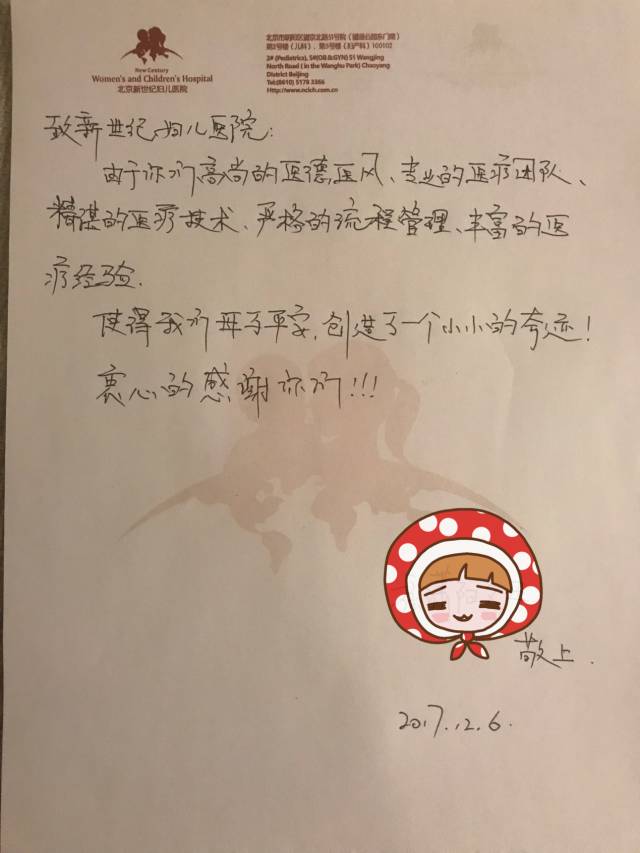 New Century
Women's and Children's Hospital
北京新世纪妇儿医院
北京市朝阳区望京北路51号院（望湖公园东门南）
第2号楼（儿科）、第5号楼（妇产科）100102
2# (Pediatrics), 5#(OB&GYN) 51 Wangjing
North Road ( in the Wanghu Park) Chaoyang
District Beijing
Tel:(8610) 5178 3366
Http://www.ncich.com.cn
致新世纪妇儿医院:
由于你们高尚的医德医风、专业的医疗团队、
精谌的医疗技术、严格的流程管理、丰富的医
疗经验.
使得我们母子平安,创造了一个小小的奇迹!
衷心的感谢你们!!!
敬上.
2017.12.6.